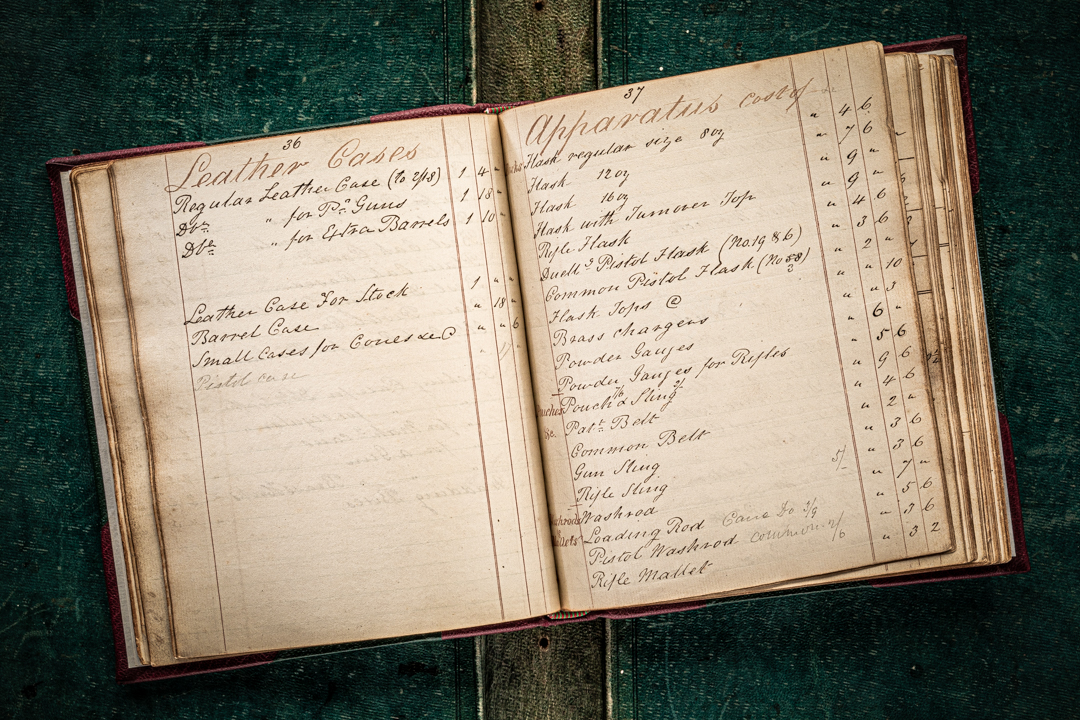 36
Leather Cases
Regular Leather Case (No 2/18) 1 4 "
Do " for Pn Guns 1 18 "
Do " for Extra Barrels 1 10 "
Leather Case For Stock 1 " "
Barrel Case " 18 "
Small Cases for Cones &c @ " " 6
Pistol case "
37
Apparatus cost of
Flask regular size 8 oz " 4 6
Flask 12 oz " 7 6
Flask 16 oz " 9 "
Flask with Turnover Top " 9 "
Rifle Flask " 4 6
Duellg Pistol Flask (No. 19 & 6) " 3 6
Common Pistol Flask (No 58) " 2 "
Flask Tops @ " " 10
Brass chargers " " 3
Powder Gauges " 6 "
Powder Gauges for Rifles " 5 6
Pouch & Sling " 9 6
Patt Belt " 4 6
Common Belt " 2 "
Gun Sling " 3 6
Rifle Sling " 3 6
Washrod 5/ " 7 "
Loading Rod Cane Do 3/9 " 5 6
Pistol Washrod common 2/6 " 3 6
Rifle Mallet " 3 2